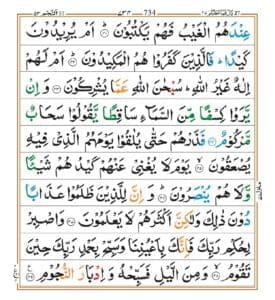 734
عِنْدَهُمُ الْغَيْبُ فَهُمْ يَكْتُبُوْنَ ؕ اَمْ يُرِيْدُوْنَ
كَيْدًا ؕ فَالَّذِيْنَ كَفَرُوْا هُمُ الْمَكِيْدُوْنَ ؕ اَمْ لَهُمْ
اِلٰهٌ غَيْرُ اللّٰهِ ؕ سُبْحٰنَ اللّٰهِ عَمَّا يُشْرِكُوْنَ وَاِنْ
يَّرَوْا كِسْفًا مِّنَ السَّمَآءِ سَاقِطًا يَّقُوْلُوْا سَحَابٌ
مَّرْكُوْمٌ فَذَرْهُمْ حَتّٰى يُلٰقُوْا يَوْمَهُمُ الَّذِىْ فِيْهِ
يُصْعَقُوْنَ يَوْمَ لَا يُغْنِىْ عَنْهُمْ كَيْدُهُمْ شَيْـًٔا
وَّلَا هُمْ يُنْصَرُوْنَ ؕ وَاِنَّ لِلَّذِيْنَ ظَلَمُوْا عَذَابًا
دُوْنَ ذٰلِكَ وَلٰكِنَّ اَكْثَرَهُمْ لَا يَعْلَمُوْنَ وَاصْبِرْ
لِحُكْمِ رَبِّكَ فَاِنَّكَ بِاَعْيُنِنَا وَسَبِّحْ بِحَمْدِ رَبِّكَ حِيْنَ
تَقُوْمُ وَمِنَ الَّيْلِ فَسَبِّحْهُ وَاِدْبَارَ النُّجُوْمِ